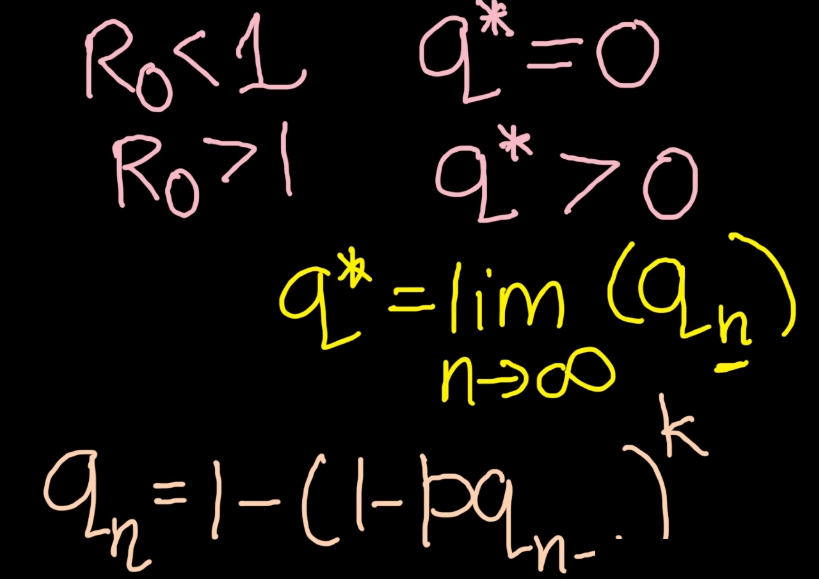 R₀<1 q*=0
R₀>1 q*>0
q*=lim (qₙ)
n→∞
qₙ=1-(1-pqₙ₋ )ᵏ